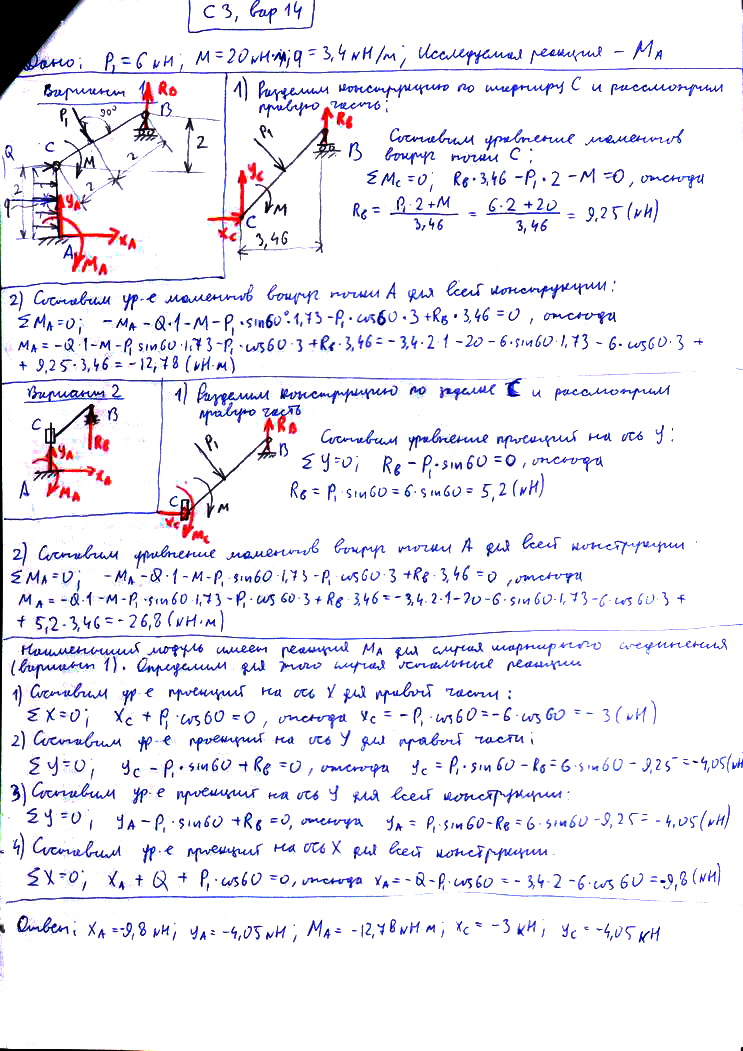 С 3, вар 14
Дано: P₁ = 6 кН; M = 20 кН·м; q = 3,4 кН/м; Исследуемая реакция – M_A
Вариант 1
R_B
B
P₁
90°
C
M
2
2
2
Q
2
q
Y_A
X_A
A
M_A
1) Разделим конструкцию по шарниру С и рассмотрим
правую часть:
R_B
P₁
B
Y_C
M
C
X_C
3,46
Составим уравнение моментов
вокруг точки С:
ΣM_C = 0; R_B·3,46 – P₁·2 – M = 0, отсюда
R_B = (P₁·2 + M)/3,46 = (6·2 + 20)/3,46 = 9,25 (кН)
2) Составим ур-е моментов вокруг точки А для всей конструкции:
ΣM_A = 0; –M_A – Q·1 – M – P₁·sin60°·1,73 – P₁·cos60·3 + R_B·3,46 = 0, отсюда
M_A = –Q·1 – M – P₁ sin60·1,73 – P₁·cos60·3 + R_B·3,46 = –3,4·2·1 – 20 – 6·sin60·1,73 – 6·cos60·3 +
+ 9,25·3,46 = –12,78 (кН·м)
Вариант 2
C
B
Y_A
R_B
X_A
A
M_A
1) Разделим конструкцию по заделке С и рассмотрим
правую часть
R_B
P₁
B
C
M
X_C
M_C
Составим уравнение проекций на ось Y:
ΣY = 0; R_B – P₁·sin60 = 0, отсюда
R_B = P₁·sin60 = 6·sin60 = 5,2 (кН)
2) Составим уравнение моментов вокруг точки А для всей конструкции
ΣM_A = 0; –M_A – Q·1 – M – P₁·sin60·1,73 – P₁·cos60·3 + R_B·3,46 = 0, отсюда
M_A = –Q·1 – M – P₁·sin60·1,73 – P₁·cos60·3 + R_B·3,46 = –3,4·2·1 – 20 – 6·sin60·1,73 – 6·cos60·3 +
+ 5,2·3,46 = –26,8 (кН·м)
Наименьший модуль имеет реакция M_A для случая шарнирного соединения
(вариант 1). Определим для этого случая остальные реакции
1) Составим ур-е проекций на ось X для правой части:
ΣX = 0; X_C + P₁·cos60 = 0, отсюда X_C = –P₁·cos60 = –6·cos60 = –3 (кН)
2) Составим ур-е проекций на ось Y для правой части:
ΣY = 0; Y_C – P₁·sin60 + R_B = 0, отсюда Y_C = P₁·sin60 – R_B = 6·sin60 – 9,25 = –4,05 (кН)
3) Составим ур-е проекций на ось Y для всей конструкции:
ΣY = 0; Y_A – P₁·sin60 + R_B = 0, отсюда Y_A = P₁·sin60 – R_B = 6·sin60 – 9,25 = –4,05 (кН)
4) Составим ур-е проекций на ось X для всей конструкции.
ΣX = 0; X_A + Q + P₁·cos60 = 0, отсюда X_A = –Q – P₁·cos60 = –3,4·2 – 6·cos60 = –9,8 (кН)
Ответ: X_A = –9,8 кН; Y_A = –4,05 кН; M_A = –12,78 кН м; X_C = –3 кН; Y_C = –4,05 кН